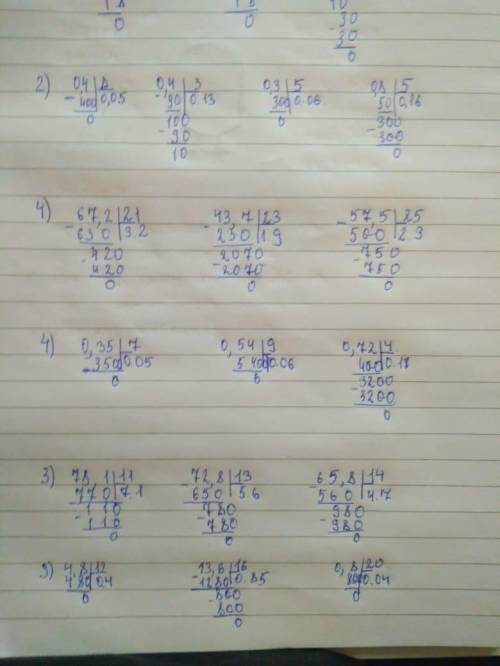 0 0 -30
30
0
2) 0,4 8 0,4 3 0,3 5 0,8 5
- 400 0,05 - 30 0.13 300 0.06 50 0,16
0 100 0 - 300
- 90 300
10 0
4) - 67,2 21 - 43,7 23 - 57,5 25
630 3.2 230 1.9 500 2.3
- 420 - 2070 - 750
420 2070 750
0 0 0
4) 0,35 7 0,54 9 0,72 4
- 350 0.05 5400 0.06 400 0.18
0 0 - 3200
- 3200
0
3) 78,1 11 - 72,8 13 - 65,8 14
770 7.1 650 5.6 560 4.7
- 110 - 780 - 980
110 780 980
0 0 0
3) 4,8 12 - 13,6 16 0,8 20
480 0.4 1280 0.85 800 0.04
0 - 800 0
800
0